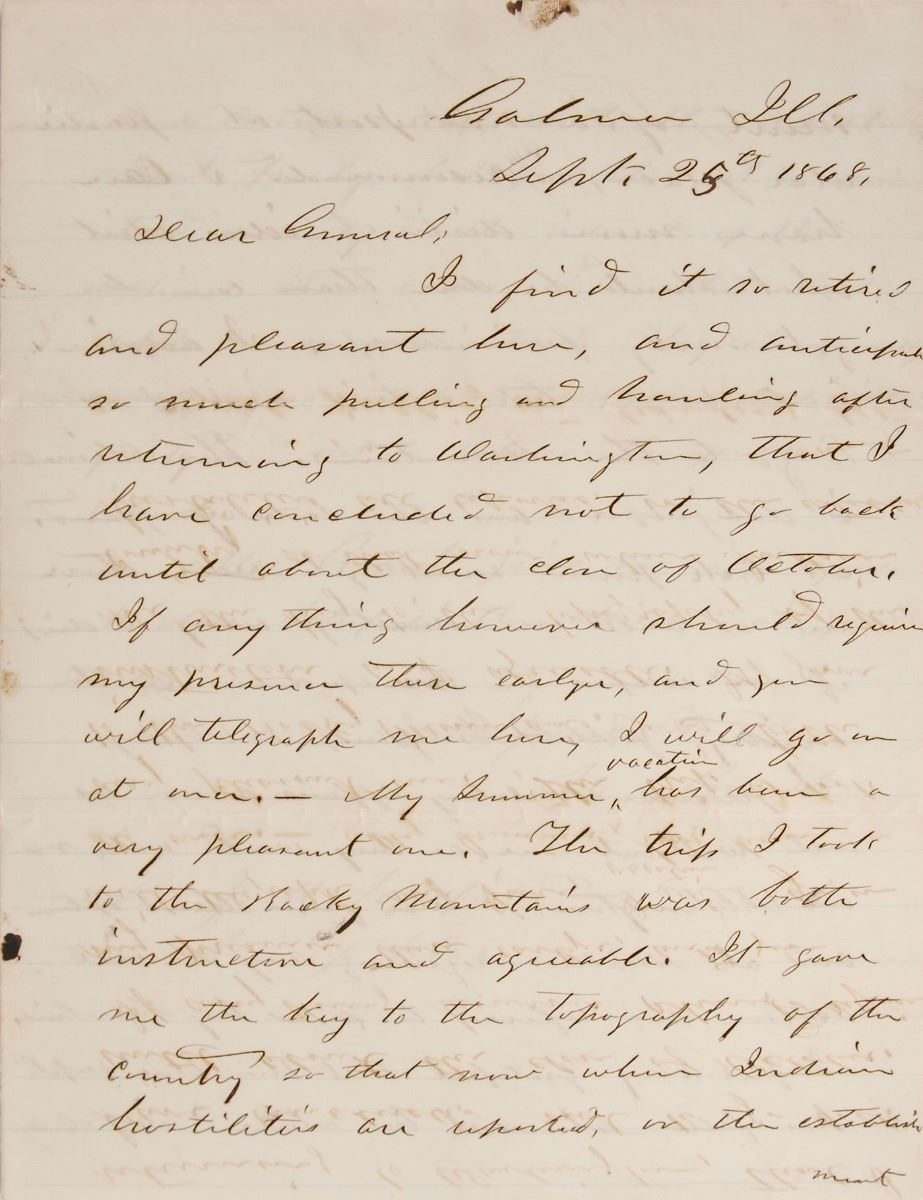 Galena Ill.
Sept. 25th 1868,
Dear General;
I find it so retired
and pleasant here, and anticipate
so much pulling and hauling after
returning to Washington, that I
have concluded not to go back
until about the close of October.
If any thing however should require
my presence there earlyer, and you
will telegraph me here, I will go on
vacation
at once. — My Summer ‸ has been a
very pleasant one. The trip I took
to the Rocky Mountains was both
instructive and agreeable. It gave
me the key to the topography of the
country so that now when Indian
hostilities are reported, or the establish
ment